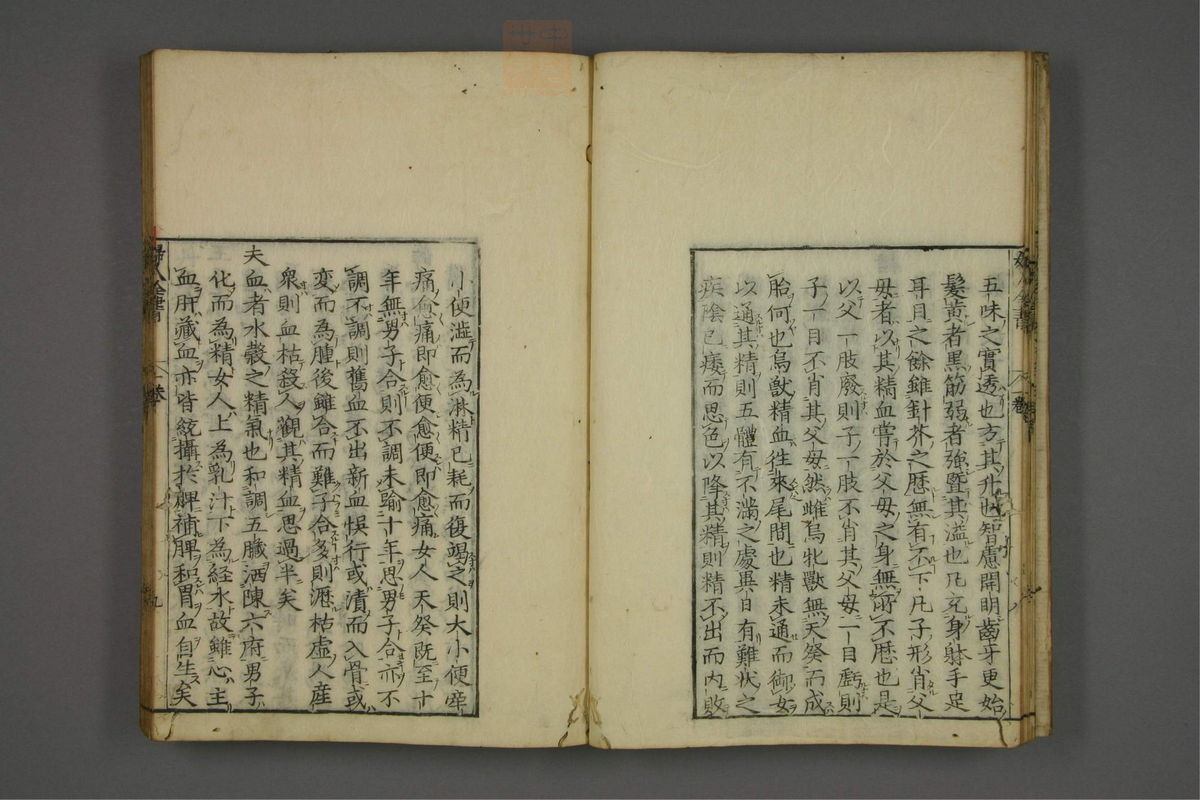 五味之實透也方其升也智慮開明齒牙更始
髮黃者黑筋弱者強暨其溢也凡充身躰手足
耳目之餘雖針芥之歴無有不下凡子形肖父
母者以其精血嘗於父母之身無所不歴也是
以父一肢廢則子一肢不肖其父母一目虧則
子一目不肖其父母然雌鳥牝獸無天癸而成
胎何也鳥獸精血徃來尾間也精未通而御女
以通其精則五體有不滿之處異日有難状之
疾陰已痿而思色以降其精則精不出而内敗
小便澁而為淋精已耗而復竭之則大小便牽
痛愈痛即愈便愈便即愈痛女人天癸既至十
年無男子合則不調未踰十年思男子合亦不
調不調則舊血不出新血悞行或漬而入骨或
変而為腫後雖合而難子合多則瀝枯虚人産
衆則血枯殺人觀其精血思過半矣
夫血者水穀之精氣也和調五臓洒陳六府男子
化而為精女人上為乳汁下為経水故雖心主
血肝藏血亦皆統攝於脾補脾和胃血自生矣